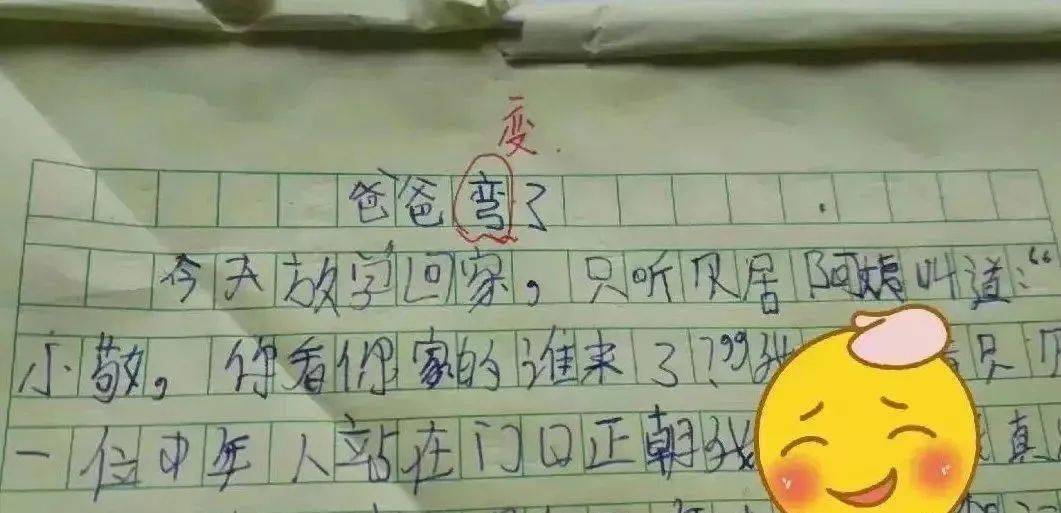 变
爸爸弯了
今天放学回家，只听见居阿姨叫道：“
小敬，你看你家的谁来了？”我 只见
一位中年人站在门口正朝我 真